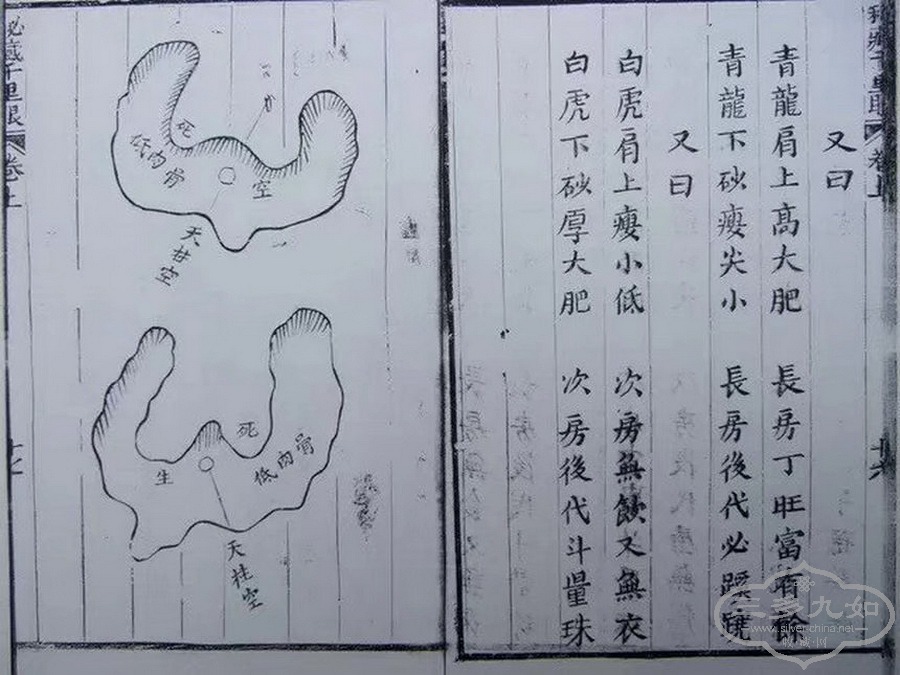 秘藏千里眼 卷上
又曰
青龍肩上高大肥 長房丁旺富有
青龍下砂瘦尖小 長房後代必蹊蹺
又曰
白虎肩上瘦小低 次房無飲又無衣
白虎下砂厚大肥 次房後代斗量珠
十六
空
低肉骨
天柱空
死
生
低肉骨
天柱空
秘藏千里眼 卷上
三多九如
www.silverchina.net